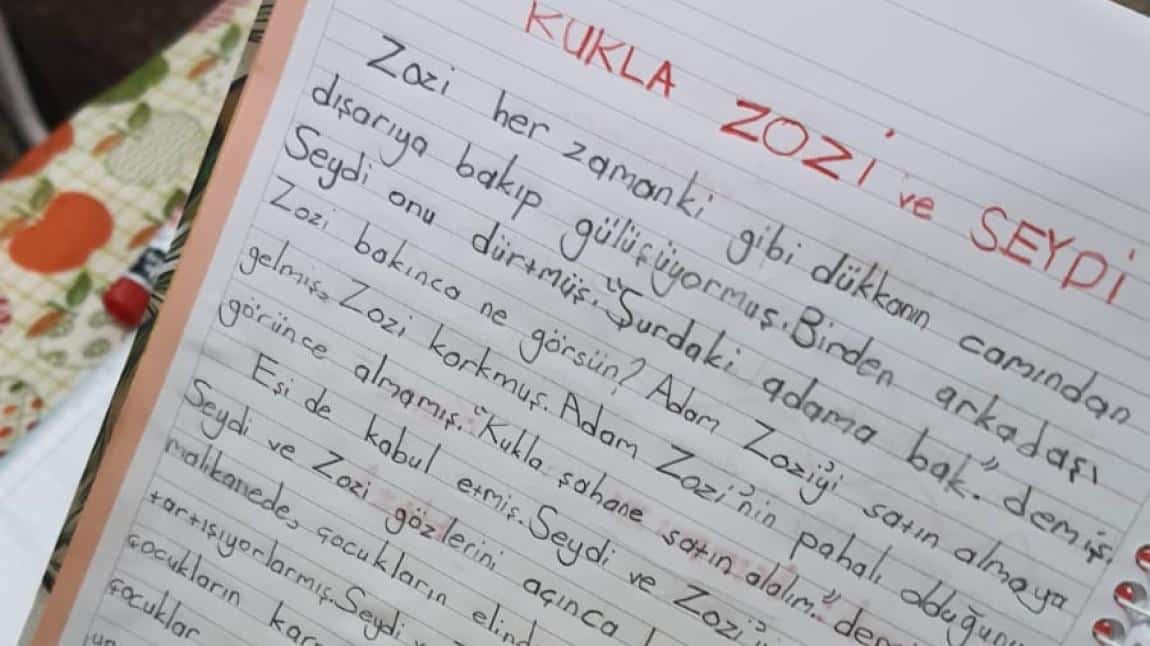 KUKLA ZOZİ ve SEYDİ
Zozi her zamanki gibi dükkanın camından
dışarıya bakıp gülüçüyormuş. Birden arkadaşı
Seydi onu dürtmüş. "Şurdaki adama bak." demiş.
Zozi bakınca ne görsün? Adam Zozi'yi satın almaya
gelmiş. Zozi korkmuş. Adam Zozi'nin pahalı olduğunu
görünce almamış. "Kukla şahane satın alalım."
Eşi de kabul etmiş. Seydi ve
Seydi ve Zozi gözlerini açınca
malikanede, çocukların
tartışıyorlarmış. Seydi
çocukların
çocuklar